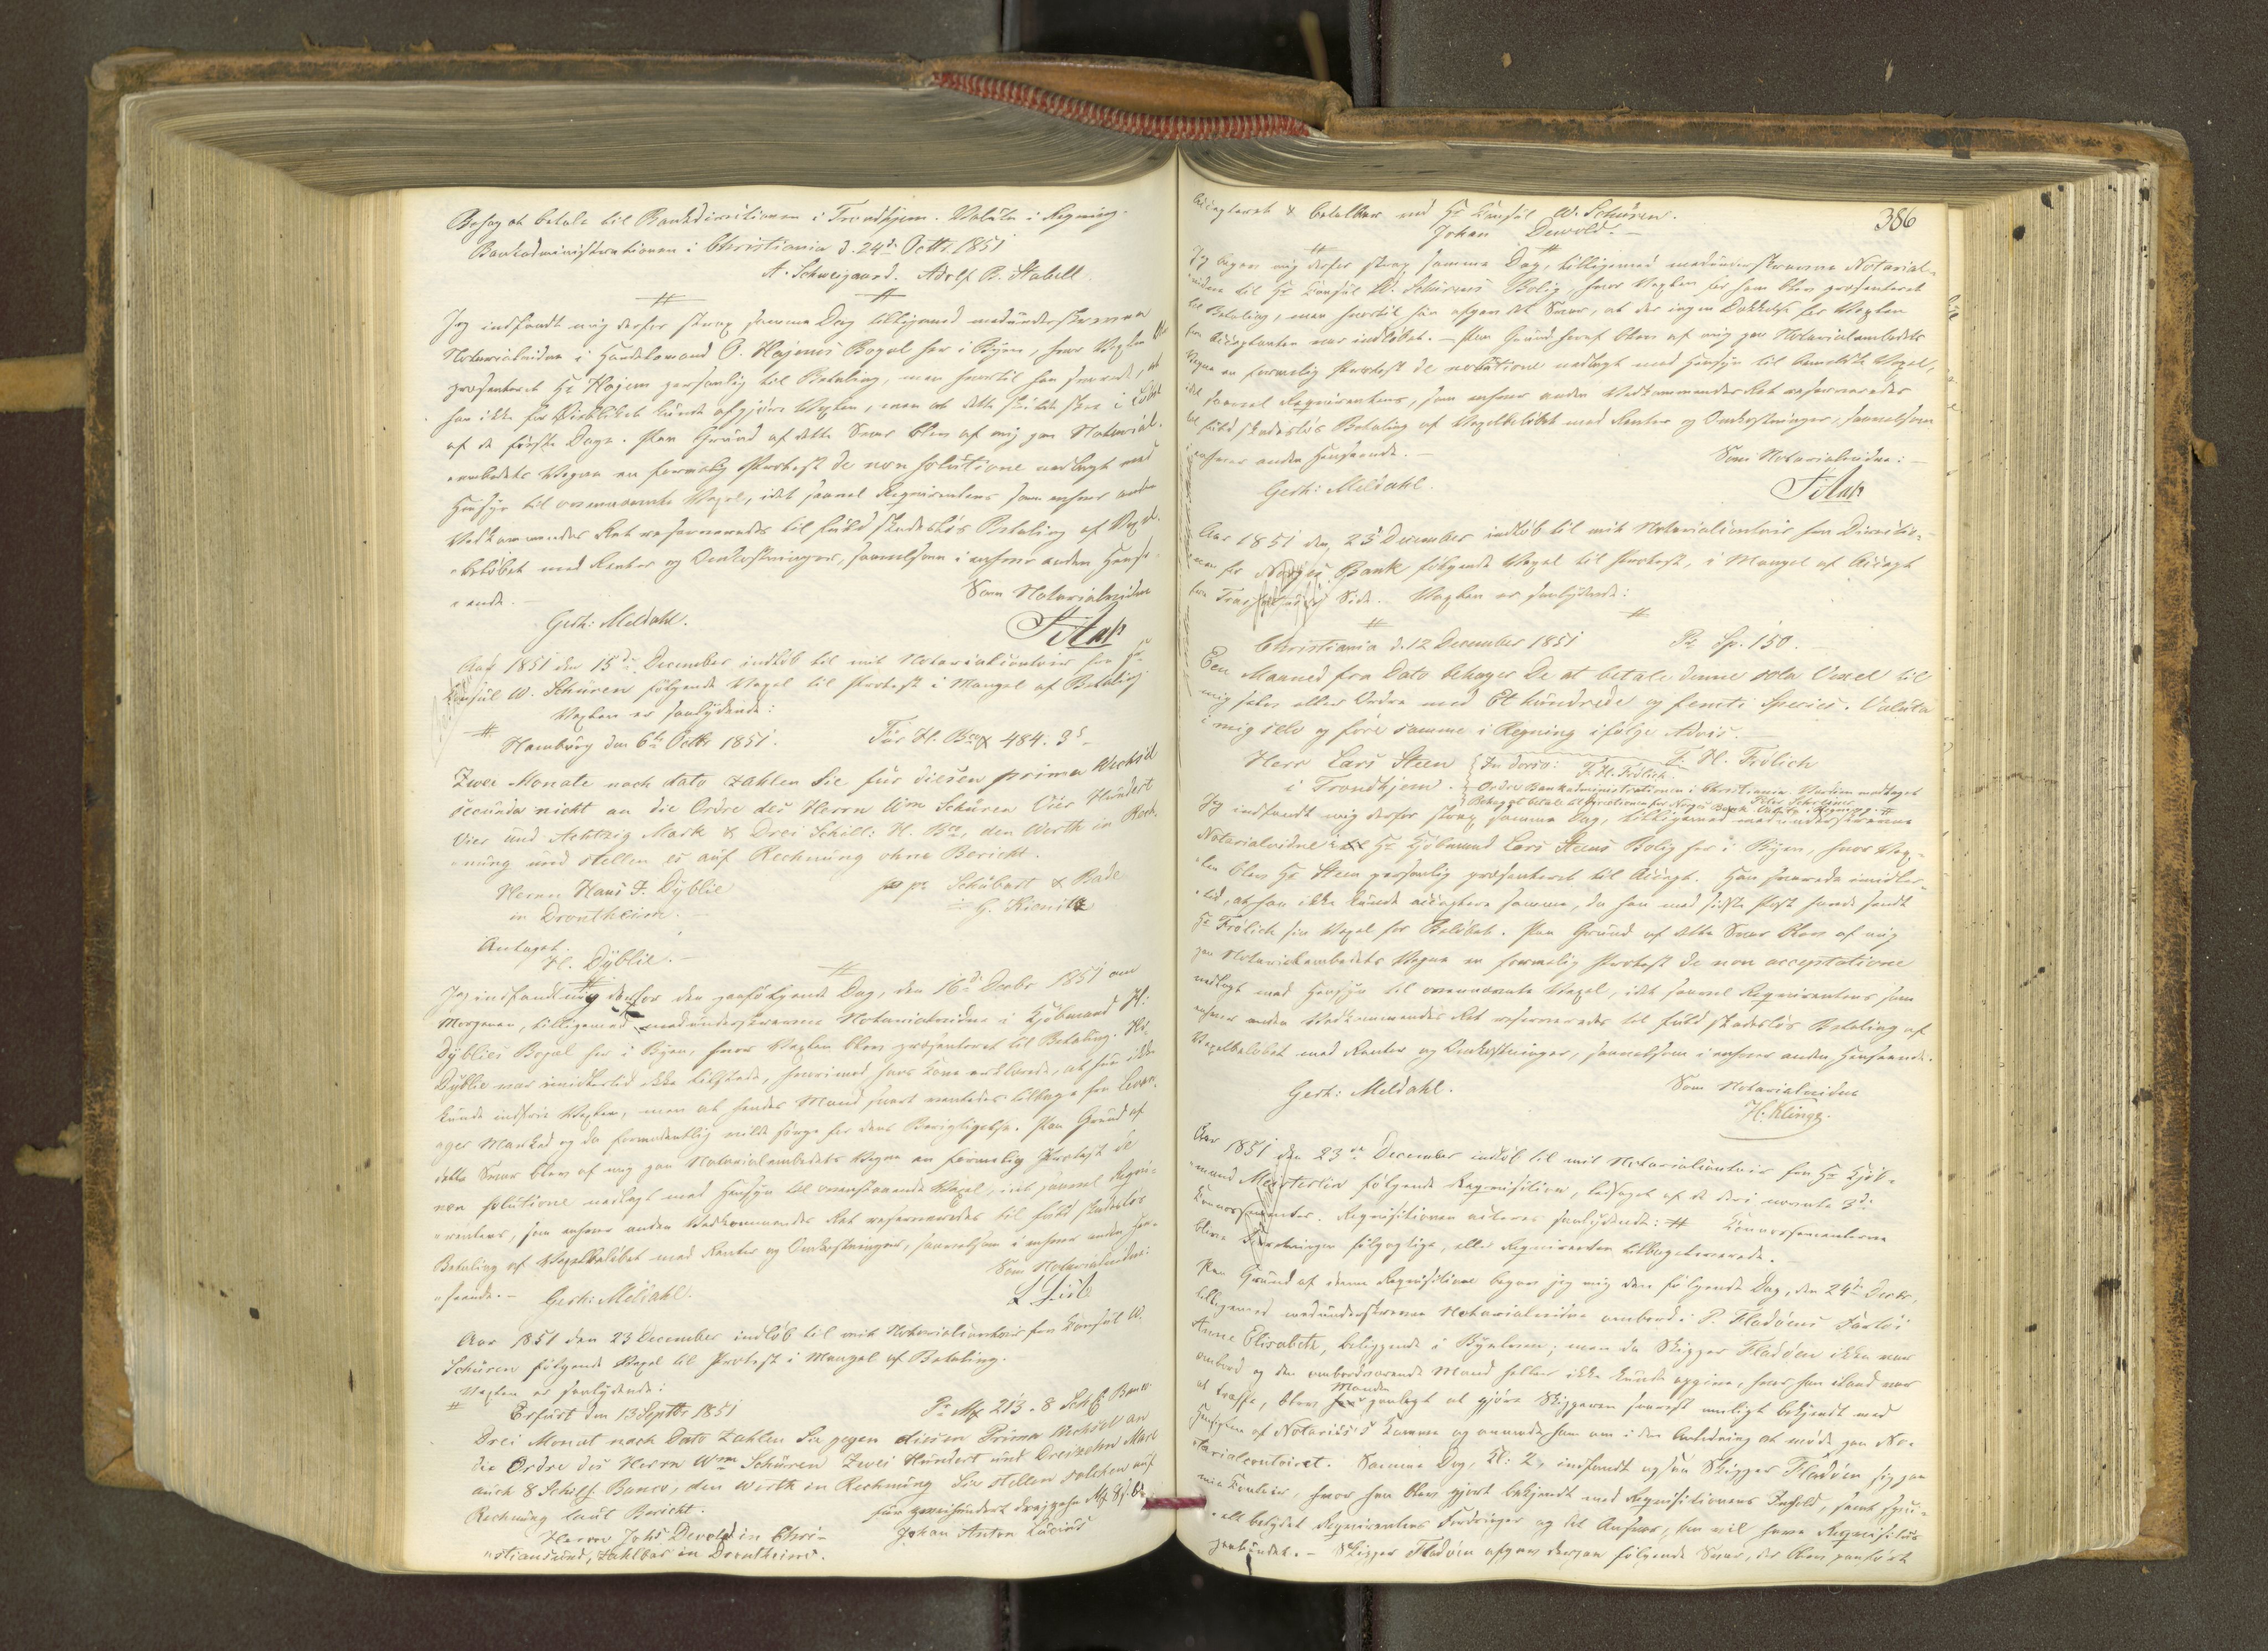 Behag at betale til Bankdirectionen i Trondhjem. Valuta i Regning.
Bankadministrationen i Christiania d. 24de Octbr 1851
A. Schweigaard. Adolf B. Stabell.
Jeg indfandt mig derfor strax samme Dag tilligemed medunderskrevne
Notarialvidne i Handelsmand O. Hajems Bopæl her i Byen, hvor Vexlen blev
præsenteret Hr Hajem personlig til Betaling, men hvortil han svarede, at
han ikke for Øieblikket kunde afgjøre Vexlen, men at dette skulde skee i Løbet
af de første Dage. Paa Grund af dette Svar blev af mig paa Notarial-
embedets Vegne en formelig Protest de non solutione nedlagt med
Hensyn til ovennævnte Vexel, idet saavel Reqvirentens som enhver anden
Vedkommendes Ret reserveredes til fuld skadesløs Betaling af Vexel-
beløbet med Renter og Omkostninger, saavelsom i enhver anden Hense-
ende.
Som Notarialvidne
Gerh: Meldahl.
Aar 1851 den 15de December indløb til mit Notarialcontoir fra Hr
Konsul W. Schüren følgende Vexel til Protest i Mangel af Betaling
Vexlen er saalydende:
Hamburg den 6te Octbr 1851. Für H. Bco 484. 3 s
Zwei Monate nach dato zahlen Sie für diesen prima Wechsel
secunda nicht an die Ordre des Herrn Wm Schüren Vier Hundert
Vier und Achtzig Mark & Drei Schill: H. Bco, den Werth in Rech-
nung und stellen es auf Rechnung ohne Bericht.
Herrn Hans F. Dyblie pp Schubart & Bade
in Drontheim. G. Kienitz
Antaget.
H. Dyblie.
Jeg indfandt mig derfor den paafølgende Dag, den 16de Decbr 1851 om
Morgenen, tilligemed medunderskrevne Notarialvidne i Kjøbmand H:
Dyblies Bopæl her i Byen, hvor Vexlen blev præsenteret til Betaling. Hr
Dyblie var imidlertid ikke tilstede, hvorimod hans Kone erklærede, at hun ikke
kunde indfrie Vexlen, men at hendes Mand snart ventedes tilbage fra Levan-
ger Marked og da formodentlig vilde sørge for dens Berigtigelse. Paa Grund af
dette Svar blev af mig paa Notarialembedets Vegne en formelig Protest de
non solutione nedlagt med Hensyn til ovenstaaende Vexel, idet saavel Reqvi-
rentens, som enhver anden Vedkommendes Ret reserveredes til fuld skadesløs
Betaling af Vexelbeløbet med Renter og Omkostninger, saavelsom i enhver anden Hen-
seende.- Gerh: Meldahl. Som Notarialvidne:
Aar 1851 den 23 December indløb til mit Notarialcontoir fra Konsul W.
Schüren følgende Vexel til Protest i Mangel af Betaling.
Vexlen er saalydende:
Erfurt den 13 Septbr 1851 Pr Mk 213. 8 Schß Banco
Drei Monat nach Dato zahlen Sie gegen diesen Prima Wechsel an
die Ordre des Herrn Wm Schüren Zwei Hundert und Dreizehn Mark
auch 8 Schilf Banco, den Werth in Rechnung Sie stellen solchen auf
Rechnung laut Bericht. für zweihundert dreizehn Mk 8 s. Bco
Herrn Johs Devold in Chri- Johan Anton Lucius
stiansund, zahlbar in Drontheim.
386
Accepteret & betalbar ved Hr Konsul W. Schüren.
Johan Dewold.
Jeg begav mig derfor strax samme Dag, tilligemed medunderskrevne Notarial-
vidne til Hr Konsul W. Schürens Bolig, hvor Vexlen for ham blev præsenteret
til Betaling, men hvortil han afgav det Svar, at der ingen Dækkelse for Vexlen
fra Acceptanten var indløbet. - Paa Grund heraf blev af mig paa Notarialembedets
Vegne en formelig Protest de non solutione nedlagt med Hensyn til bemeldte Vexel,
idet saavel Reqvirentens, som enhver anden Vedkommendes Ret reserveredes
til fuld skadesløs Betaling af Vexelbeløbet med Renter og Omkostninger, saavelsom
i enhver anden Henseende. -
Som Notarialvidne: -
Gerh: Meldahl.
Aar 1851 den 23de December indløb til mit Notarialcontoir fra Directio-
nen for Norges Bank følgende Vexel til Protest, i Mangel af Accept
fra Side. Vexlen er saalydende:
Christiania d. 12 December 1851 Pr Sp. 150.
Een Maaned fra Dato behager De at betale denne sola Vexel til
mig selv eller Ordre med Et hundrede og femti Species. Valuta
i mig selv og føre samme i Regning ifølge Advis.
Herr Lars Steen In dorso: F. H. Frölich. F. H. Frölich
i Trondhjem. Ordre Bankadministrationen i Christiania. Værdien modtaget
Peter Schreiner
Behag at betale til Directionen for Norges Bank Valuta i Regning.
Jeg indfandt mig derfor strax samme Dag, tilligemed medunderskrevne
Notarialvidne i Hr Kjøbmand Lars Steens Bolig her i Byen, hvor Vex-
len blev Hr Steen personlig præsenteret til Accept. Han svarede imidler-
tid, at han ikke kunde acceptere samme, da han med sidste Post havde sendt
Hr Frölich sin Vexel for Beløbet. Paa Grund af dette Svar blev af mig
paa Notarialembedets Vegne en formelig Protest de non acceptatione
nedlagt med Hensyn til ovennævnte Vexel, idet saavel Reqvirentens som
enhver anden Vedkommendes Ret reserveredes til fuld skadesløs Betaling af
Vexelbeløbet med Renter og Omkostninger, saavelsom i enhver anden Henseende.
Gerh: Meldahl. Som Notarialvidne
H. Klingz.
Aar 1851 den 23de December indløb til mit Notarialcontoir fra Hr Kjøb-
mand følgende Reqvisition, ledsaget af de deri nævnte 3de
Konnossementer. Reqvisitionen acteres saalydende: Konnossementerne
bleve følgagtige, eller Reqvirenten tilbageleverede.
Paa Grund af denne Reqvisition begav jeg mig den følgende Dag, den 24de Decbr,
tilligemed medunderskrevne Notarialvidne ombord i P. Fladøens Fartøi
Anne Elisabeth, beliggende i Byelven; men da Skipper Fladøen ikke var
ombord og den ombordværende Mand heller ikke kunde opgive, hvor han iland var
at træffe, blev Manden paalagt at gjøre Skipperen snarest muligt bekjendt med
Hensigten af Notarius's Komme og anmode ham om i den Anledning at møde paa No-
tarialcontoiret. Samme Dag, Kl: 2, indfandt ogsaa Skipper Fladøen sig paa
mit Contoir, hvor han blev gjort bekjendt med Reqvisitionens Indhold, samt speci-
elt betydet Reqvirentens Fordringer og det Ansvar, han vil have Reqvisitus
paabyrdet. - Skipper Fladøen afgav derpaa følgende Svar, der blev paaført